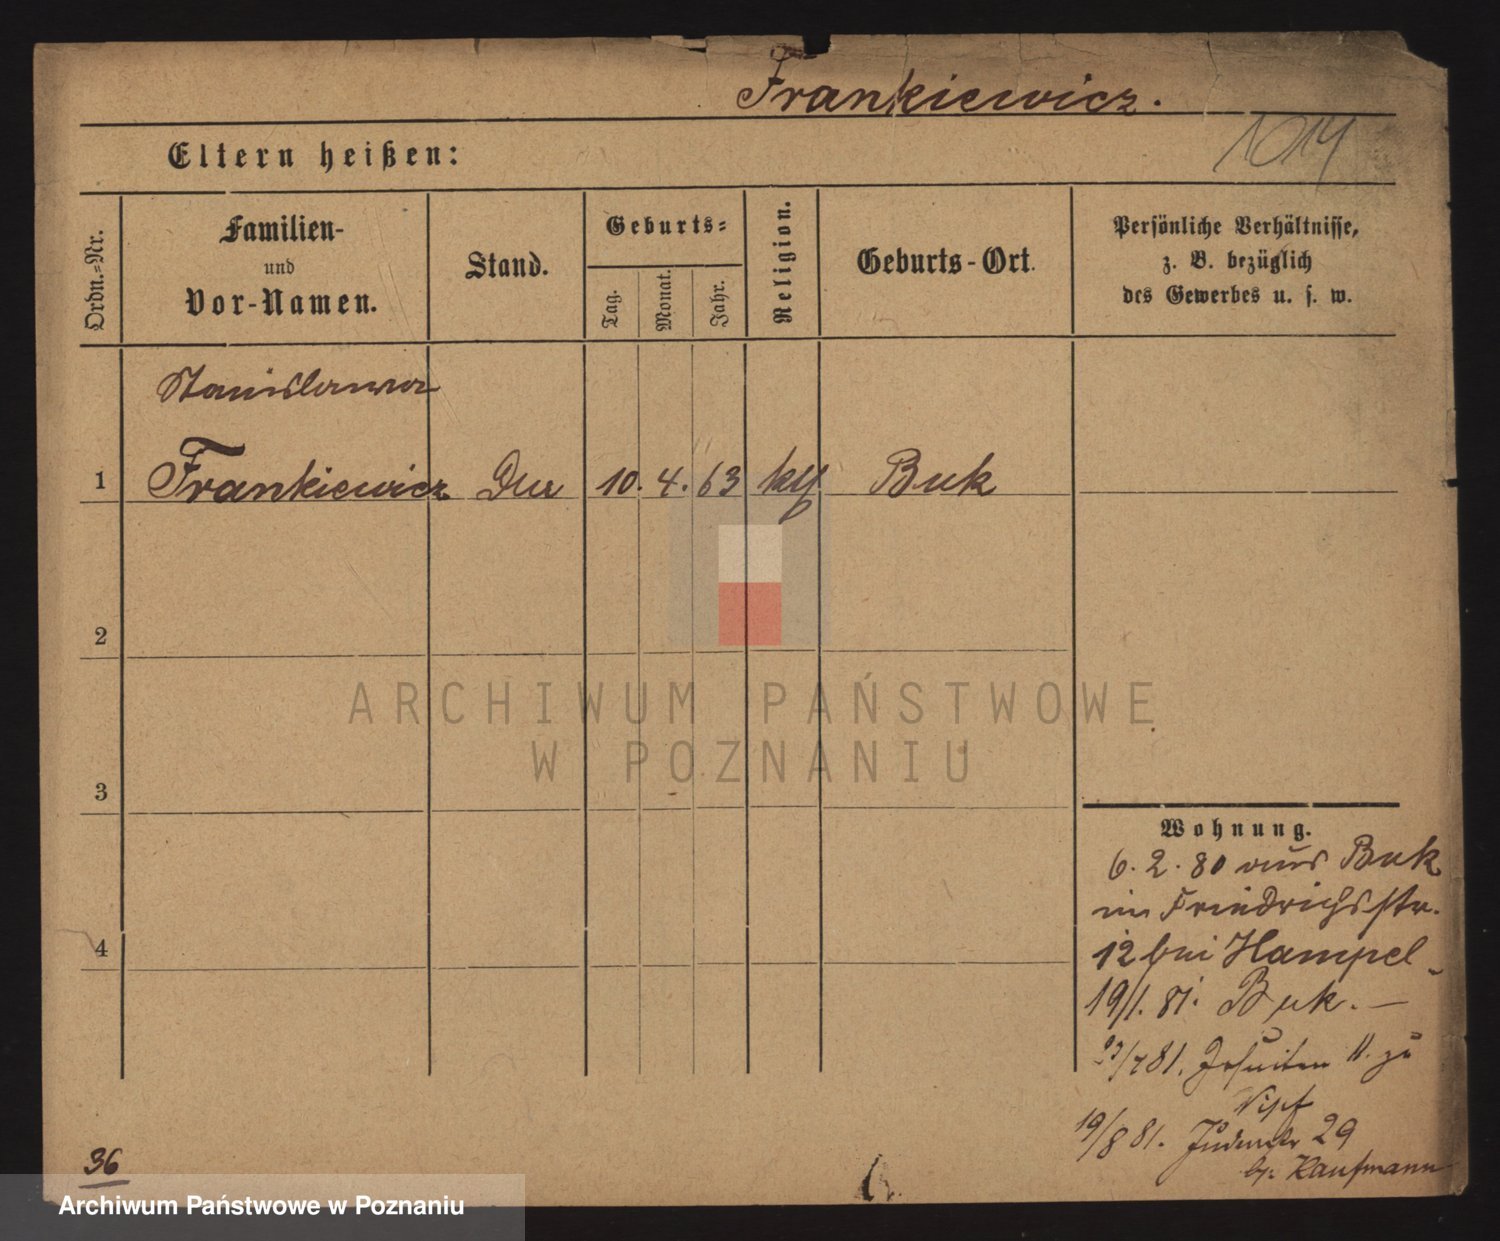 Frankiewicz.
1014
Eltern heißen:
Ordn.=Nr.
Familien-
und
Vor-Namen.
Stand.
Geburts=
Tag.
Monat.
Jahr.
Religion.
Geburts-Ort.
Persönliche Verhältnisse,
z. B. bezüglich
des Gewerbes u. s. w.
Stanislawa
1 Frankiewicz 10. 4. 63 kth Buk
2
3
4
ARCHIWUM PAŃSTWOWE
W POZNANIU
Wohnung.
6. 2. 80 aus Buk
in Friedrichsstr.
12 bei Hampel
19/1. 81. Buk. —
/7 81. Jesuiten 11. zu
19/8 81. Judenstr 29
bei Kaufmann
36
Archiwum Państwowe w Poznaniu